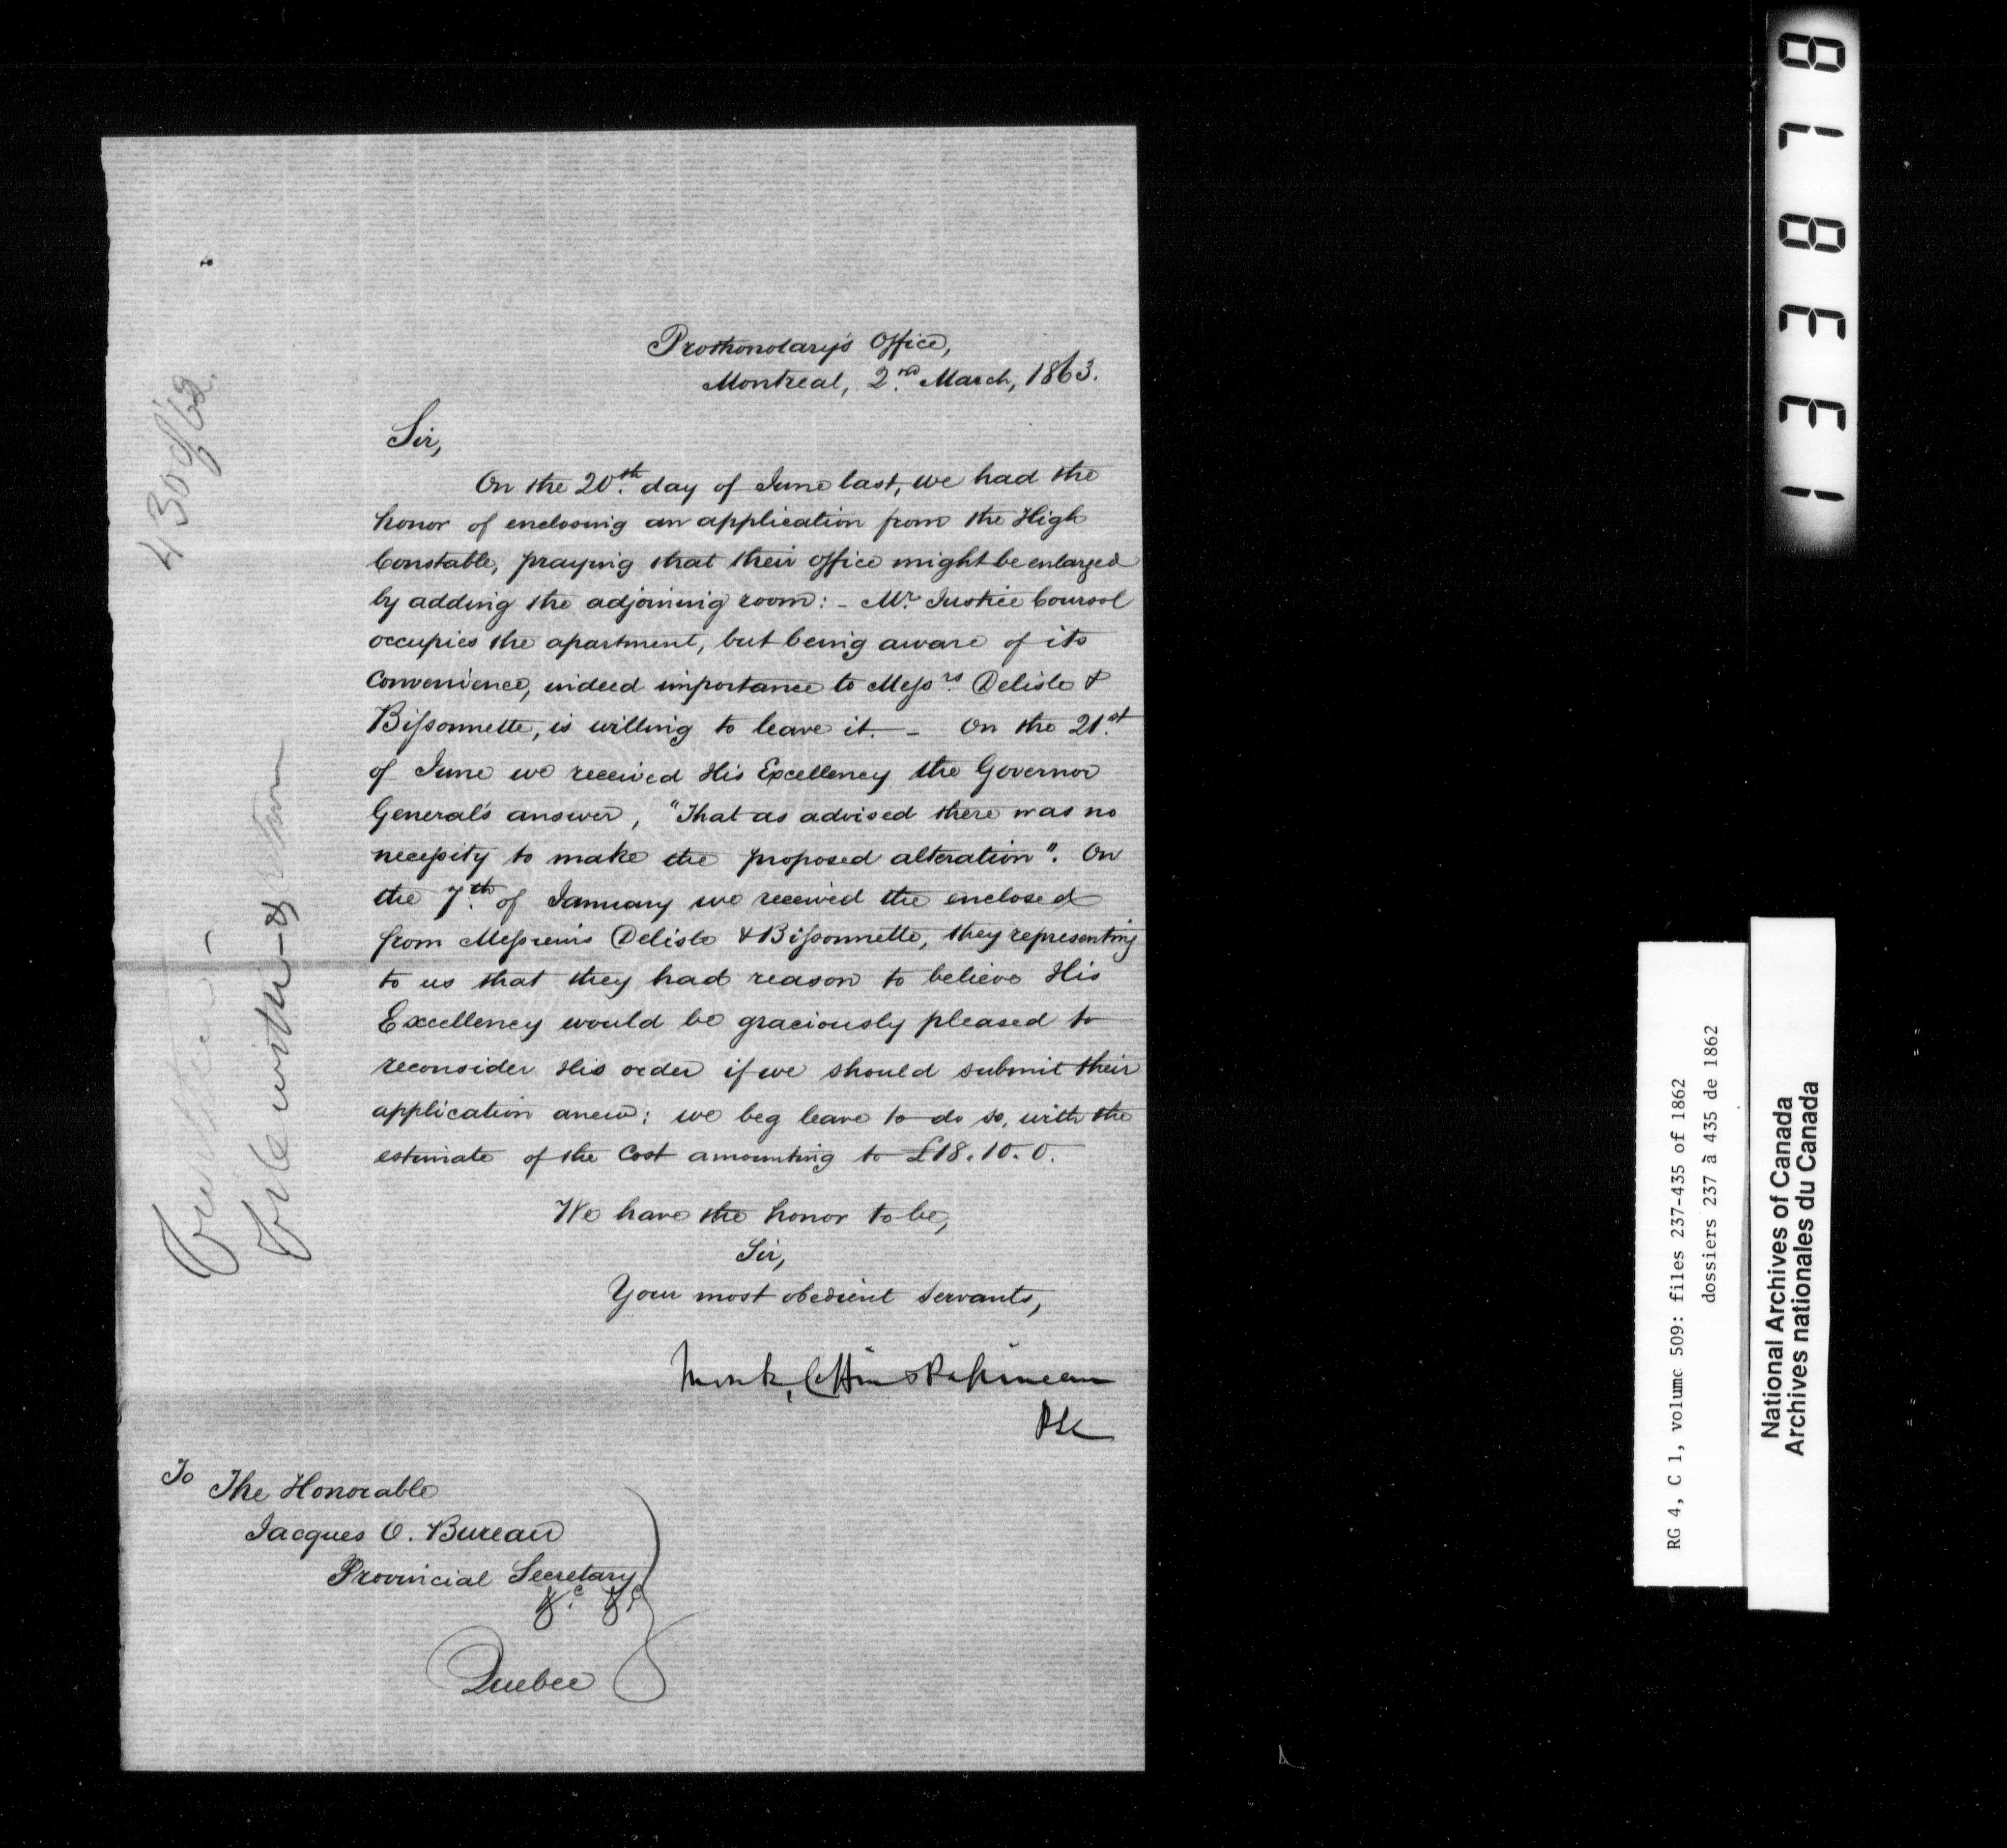 Prothonotary's Office,
Montreal, 2nd March, 1863.
Sir,
On the 20th day of June last, we had the
honor of enclosing an application from the High
Constable, praying that their office might be enlarged
by adding the adjoining room: - Mr Justice Coursol
occupies the apartment, but being aware of its
convenience, indeed importance to Messrs Delisle &
Bissonnette, is willing to leave it. - On the 21st
of June we received His Excellency the Governor
General's answer, "That as advised there was no
necessity to make the proposed alteration". On
the 7th of January we received the enclosed
from Messieurs Delisle & Bissonnette, they representing
to us that they had reason to believe His
Excellency would be graciously pleased to
reconsider His order if we should submit their
application anew: we beg leave to do so, with the
estimate of the Cost amounting to £18.10.0.
We have the honor to be,
Sir,
Your most obedient Servants,
Monk, Coffin & Papineau
PSC
To The Honorable
Jacques O. Bureau
Provincial Secretary
&c &c
Quebec
430 of 62.
File with
133878
RG 4, C 1, volume 509: files 237-435 of 1862
dossiers 237 à 435 de 1862
National Archives of Canada
Archives nationales du Canada